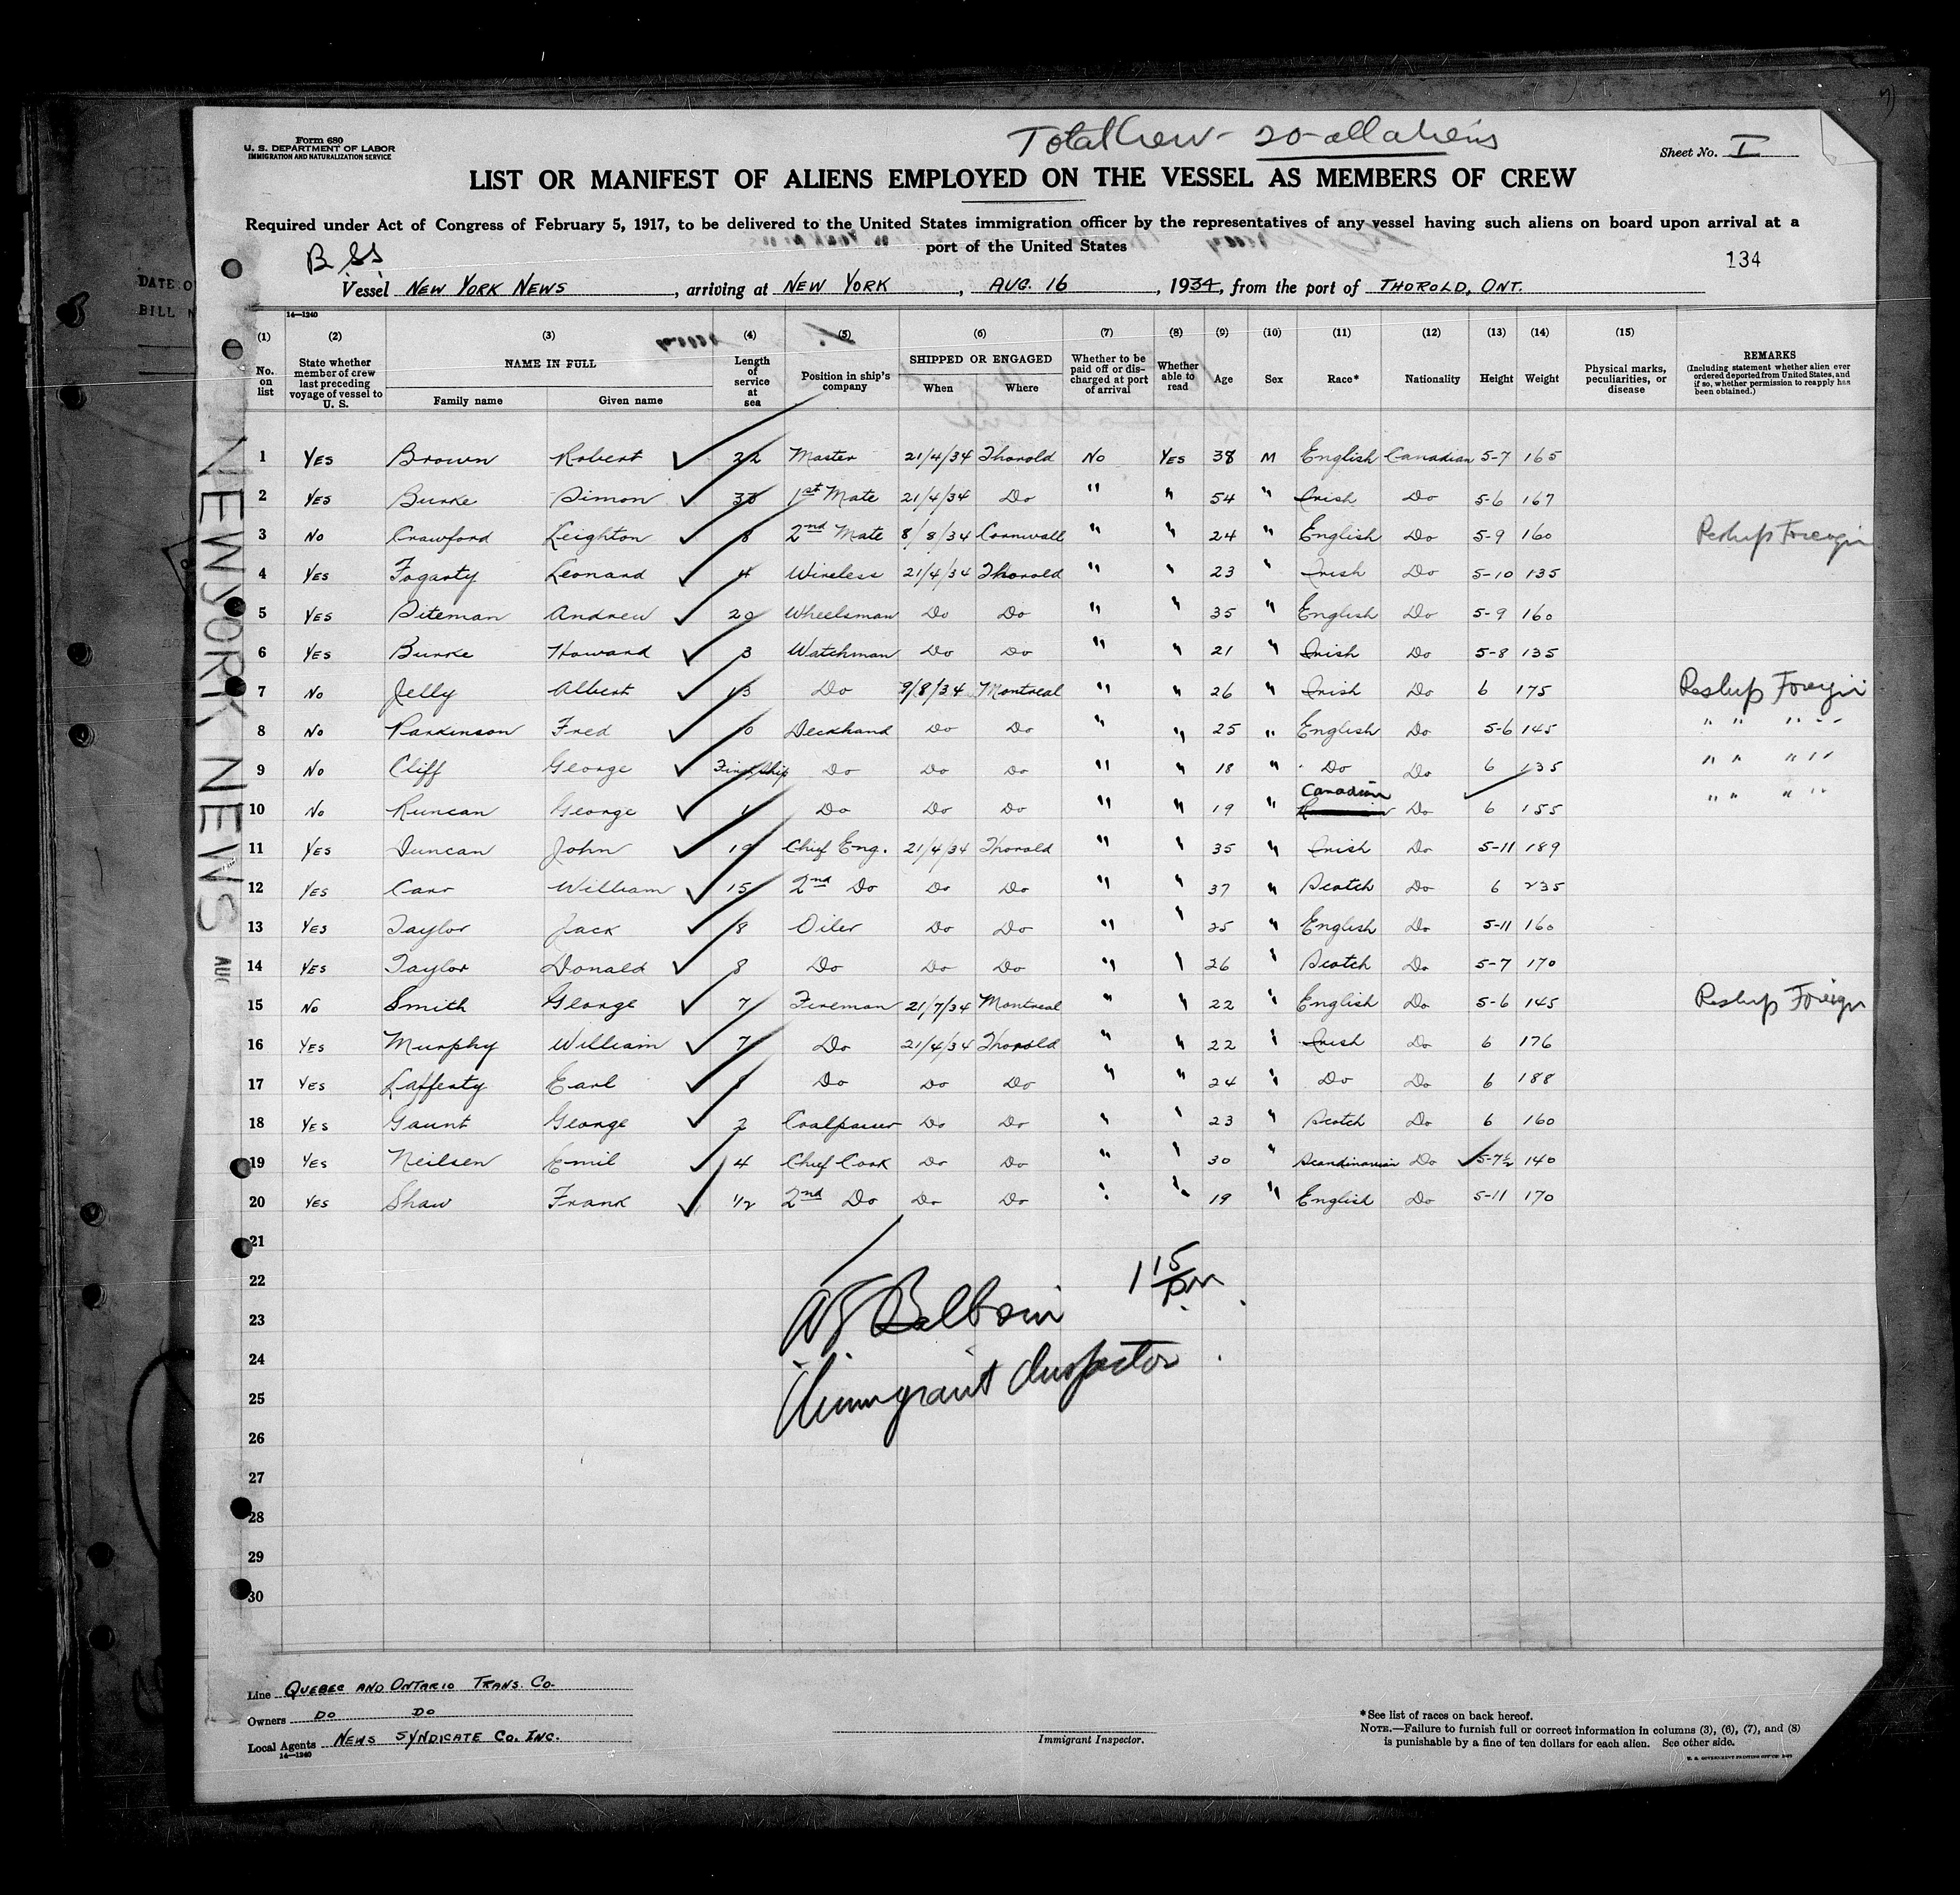 Total Crew - 20 - all aliens
Form 680
U. S. DEPARTMENT OF LABOR
IMMIGRATION AND NATURALIZATION SERVICE
Sheet No. I
LIST OR MANIFEST OF ALIENS EMPLOYED ON THE VESSEL AS MEMBERS OF CREW
Required under Act of Congress of February 5, 1917, to be delivered to the United States immigration officer by the representatives of any vessel having such aliens on board upon arrival at a
port of the United States
B SS
134
Vessel NEW YORK NEWS, arriving at NEW YORK, AUG. 16, 1934, from the port of THOROLD, ONT.
14—1240
(1) No. on list
(2) State whether member of crew last preceding voyage of vessel to U. S.
(3) NAME IN FULL Family name Given name
(4) Length of service at sea
(5) Position in ship's company
(6) SHIPPED OR ENGAGED When Where
(7) Whether to be paid off or discharged at port of arrival
(8) Whether able to read
(9) Age
(10) Sex
(11) Race*
(12) Nationality
(13) Height
(14) Weight
(15) Physical marks, peculiarities, or disease
REMARKS
(Including statement whether alien ever ordered deported from United States, and if so, whether permission to reapply has been obtained.)
1 YES Brown Robert 22 Master 21/4/34 Thorold No YES 38 M English Canadian 5-7 165
2 YES Burke Simon 1st Mate 21/4/34 Do " " 54 " Irish Do 5-6 167
3 No Crawford Leighton 8 2nd Mate 8/8/34 Cornwall " " 24 " English Do 5-9 160 Reship Foreign
4 YES Fogarty Leonard 4 Wireless 21/4/34 Thorold " " 23 " Irish Do 5-10 135
5 YES Piteman Andrew 20 Wheelsman Do Do " " 35 " English Do 5-9 160
6 YES Burke Howard 3 Watchman Do Do " " 21 " Irish Do 5-8 135
7 No Jelly Albert 13 Do 9/8/34 Montreal " " 26 " Irish Do 6 175 Reship Foreign
8 No Parkinson Fred Deckhand Do Do " " 25 " English Do 5-6 145 " " " "
9 No Cliff George First Ship Do Do Do " " 18 " Do Do 6 135 " " " "
10 No Runcan George 1 Do Do Do " " 19 " Canadian Do 6 155 " " " "
11 YES Duncan John 19 Chief Eng. 21/4/34 Thorold " " 35 " Irish Do 5-11 189
12 YES Carr William 15 2nd Do Do Do " " 37 " Scotch Do 6 235
13 YES Taylor Jack 8 Oiler Do Do " " 25 " English Do 5-11 160
14 YES Taylor Donald 8 Do Do Do " " 26 " Scotch Do 5-7 170
15 No Smith George 7 Fireman 21/7/34 Montreal " " 22 " English Do 5-6 145 Reship Foreign
16 YES Murphy William 7 Do 21/4/34 Thorold " " 22 " Irish Do 6 176
17 YES Lafferty Earl Do Do Do " " 24 " Do Do 6 188
18 YES Gaunt George 2 Coalpasser Do Do " " 23 " Scotch Do 6 160
19 YES Neilsen Emil 4 Chief Cook Do Do " " 30 " Scandinavian Do 5-7½ 140
20 YES Shaw Frank ½ 2nd Do Do Do " " 19 " English Do 5-11 170
21
22 1 15 pm
23
24 Immigrant Inspector
25
26
27
28
29
30
NEW YORK NEWS AUG
Line QUEBEC AND ONTARIO TRANS. CO.
Owners DO DO
Local Agents NEWS SYNDICATE CO. INC.
14—1240
Immigrant Inspector.
*See list of races on back hereof.
NOTE.—Failure to furnish full or correct information in columns (3), (6), (7), and (8)
is punishable by a fine of ten dollars for each alien. See other side.
DATE O
BILL N